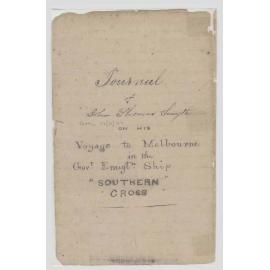 Journal
of
John Thomas Smyth
ON HIS
Voyage to Melbourne
in the
Gov.t Emigt.n Ship
"SOUTHERN
CROSS"